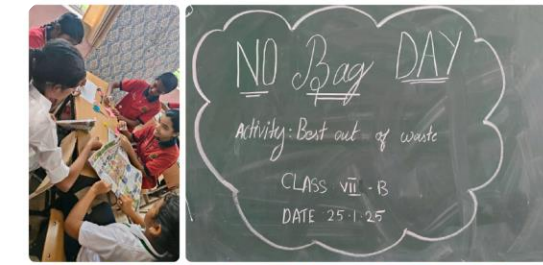 NO Bag DAY
Activity: Best out of waste
CLASS VII - B
DATE 25.1.25